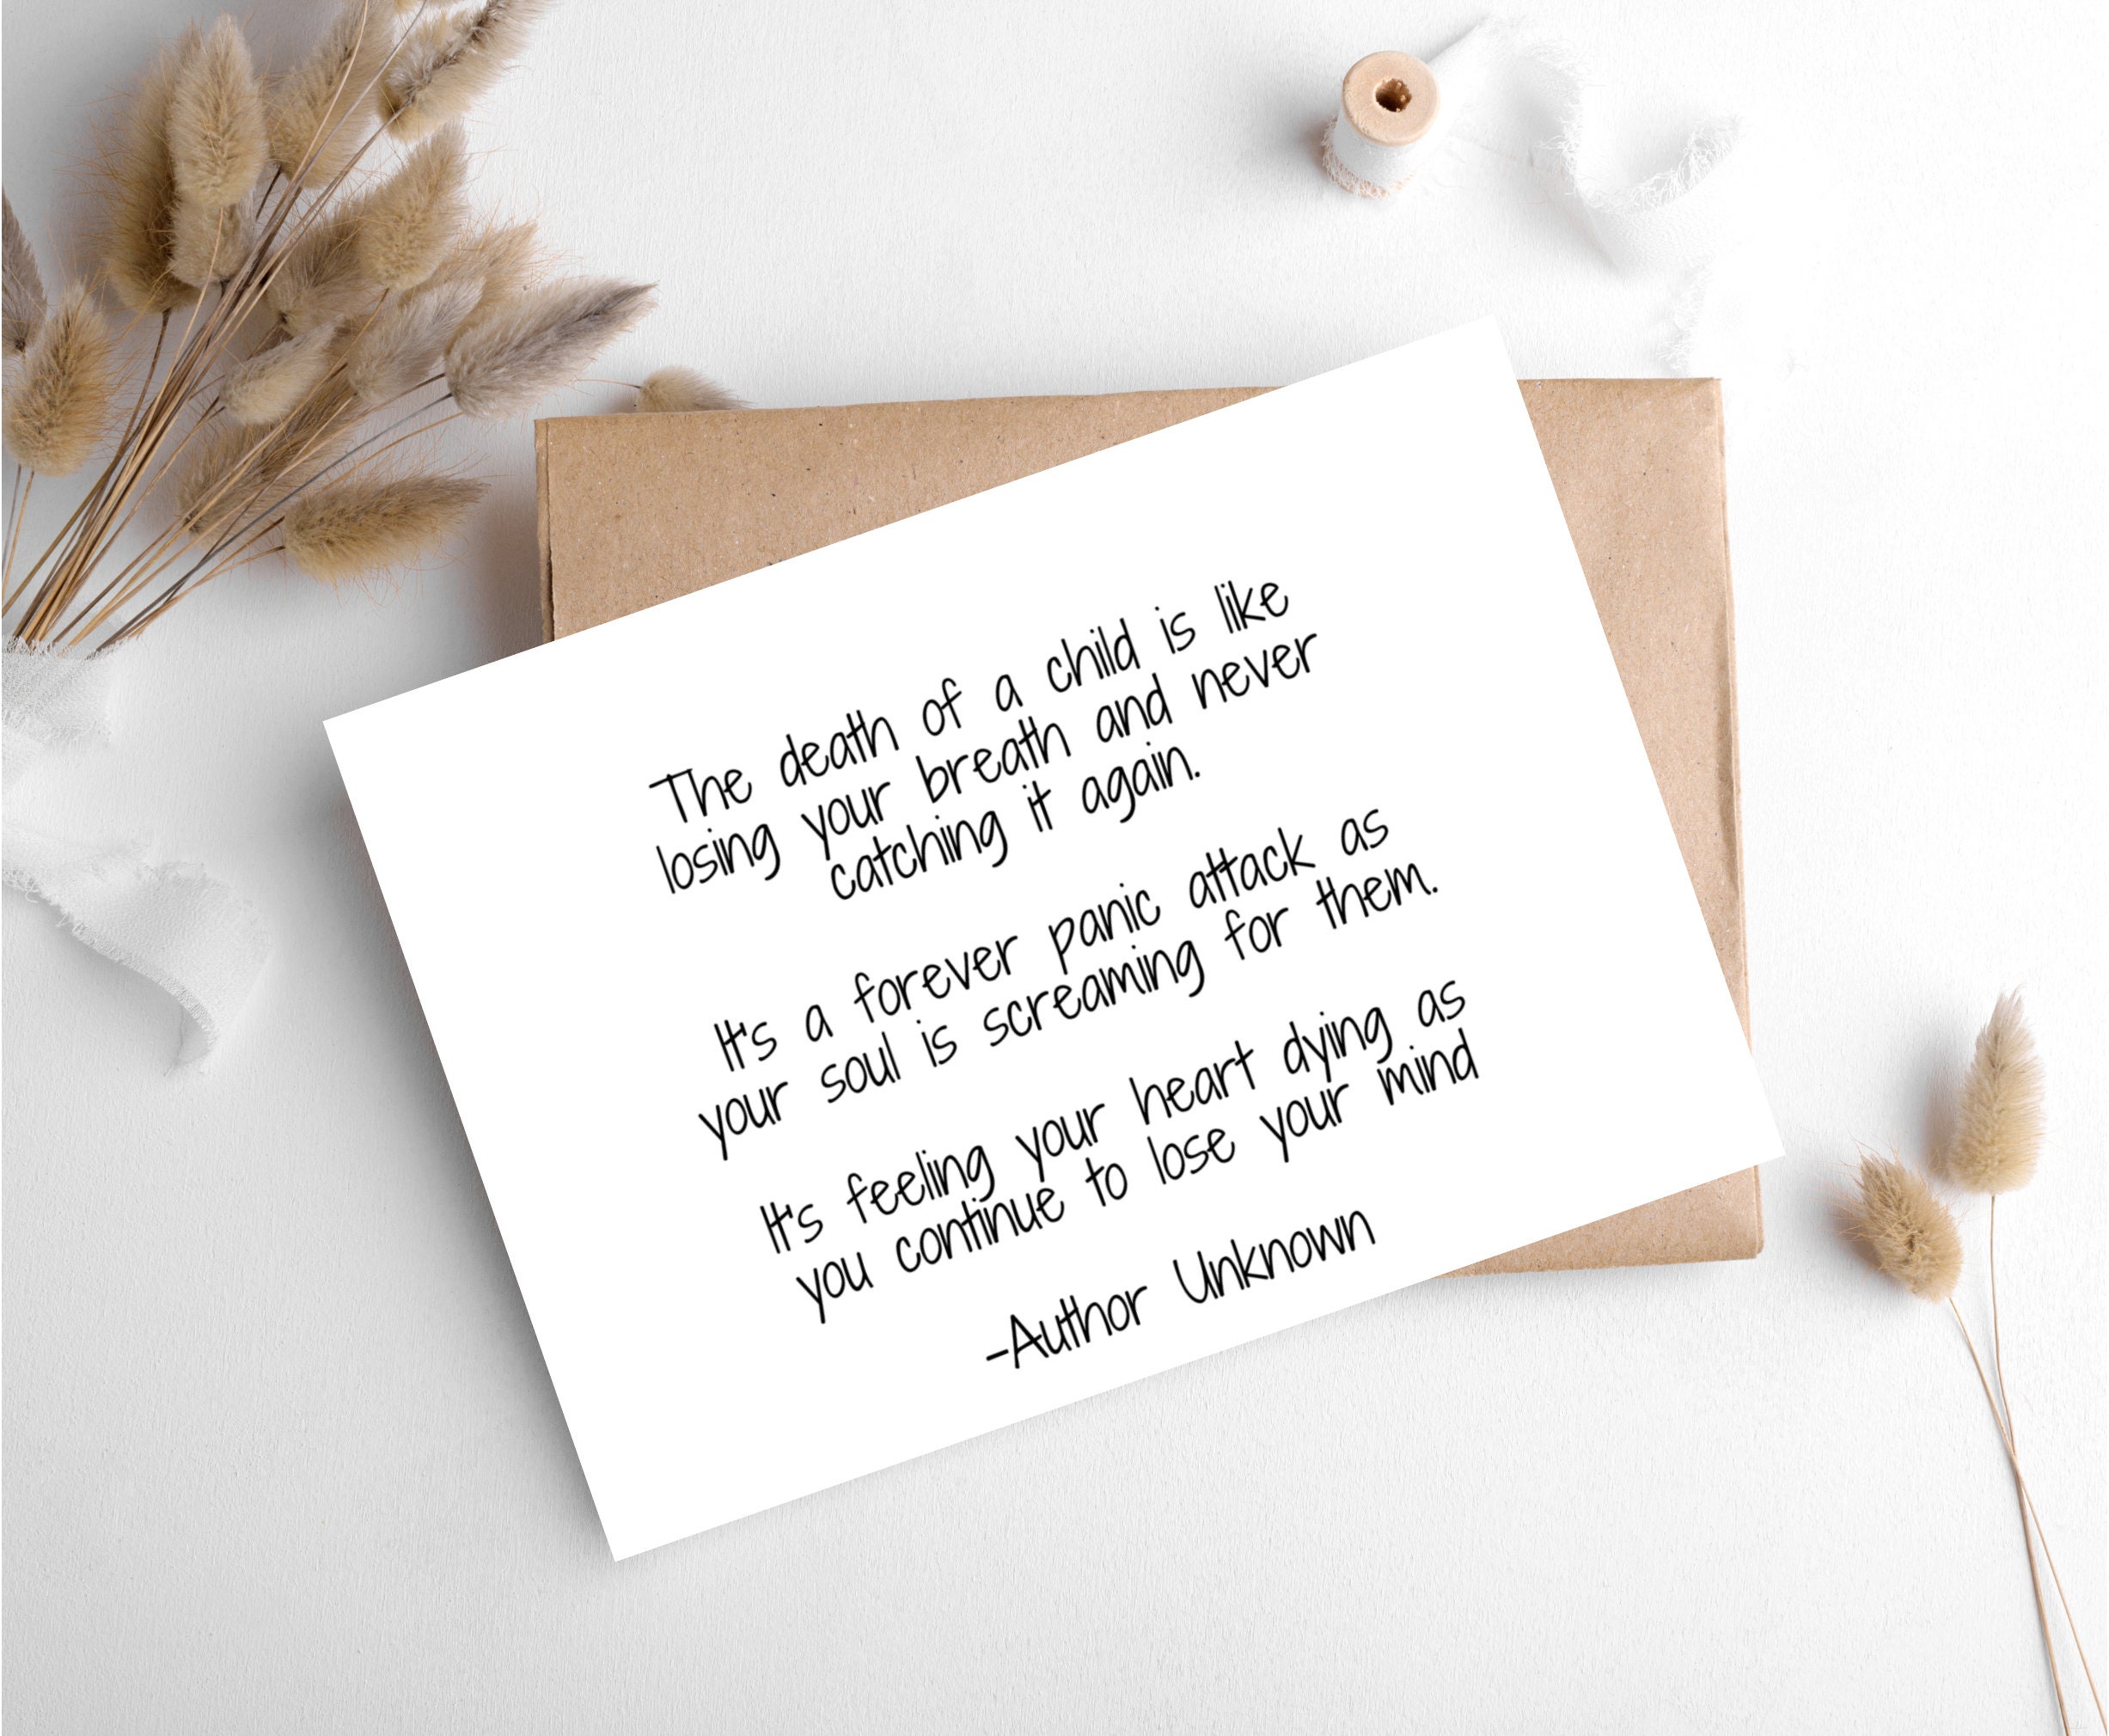 The death of a child is like
losing your breath and never
catching it again.
It's a forever panic attack as
your soul is screaming for them.
It's feeling your heart dying as
you continue to lose your mind
-Author Unknown